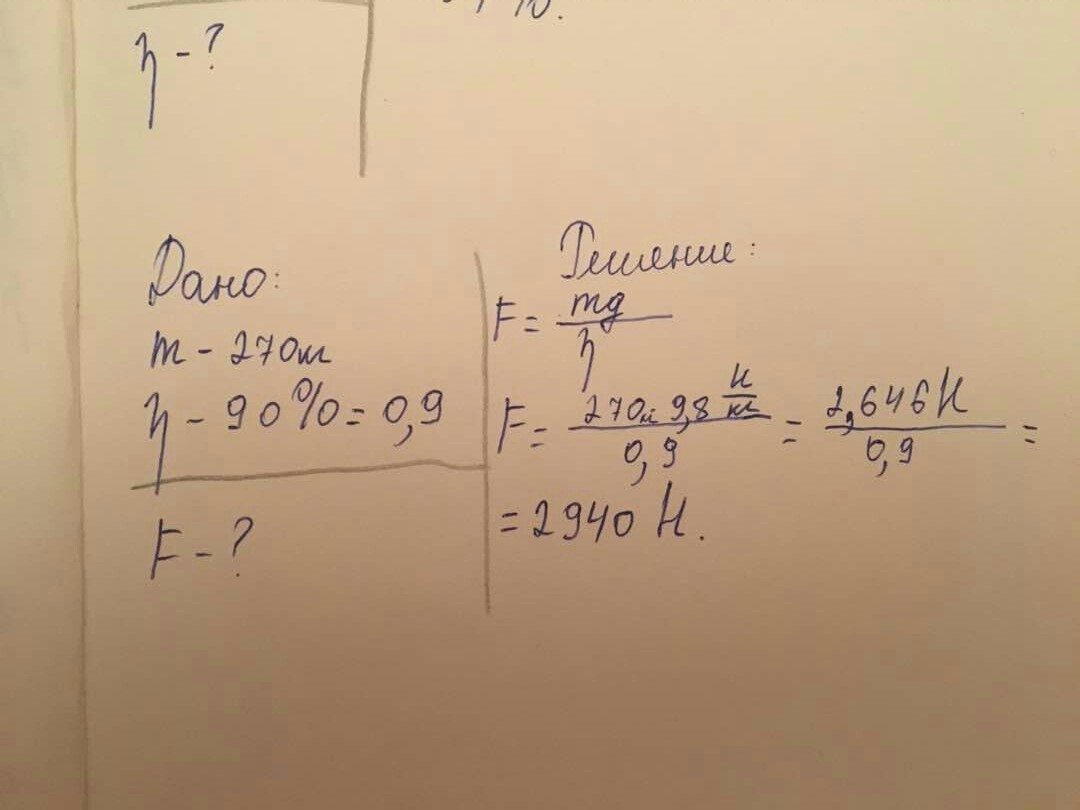 η - ?
Дано:
m - 270м
η - 90% = 0,9
F - ?
Решение:
F = mg/η
F = 270м 9,8 Н/кг / 0,9 = 2,646Н / 0,9 =
= 2940 Н.